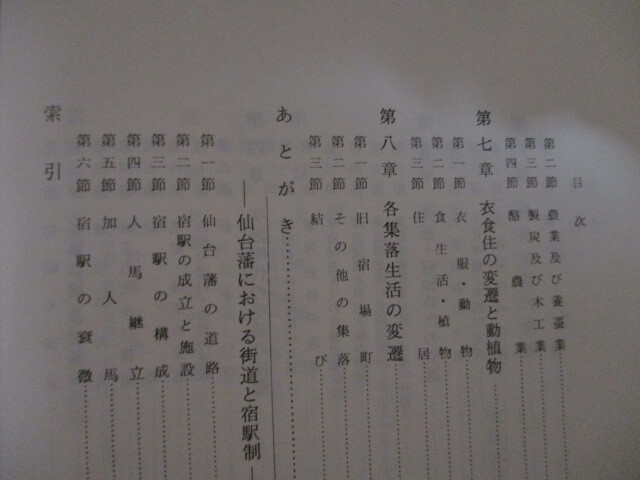 目次
第二節 農業及び養蚕業
第三節 製炭及び木工業
第四節 酪農業
第七章 衣食住の変遷と動植物
第一節 衣服・動物
第二節 食生活・植物
第三節 住居
第八章 各集落生活の変遷
第一節 旧宿場町
第二節 その他の集落
第三節 結び
あとがき
―仙台藩における街道と宿駅制―
第一節 仙台藩の道路
第二節 宿駅の成立と施設
第三節 宿駅の構成
第四節 人馬継立
第五節 加人馬
第六節 宿駅の衰微
索引